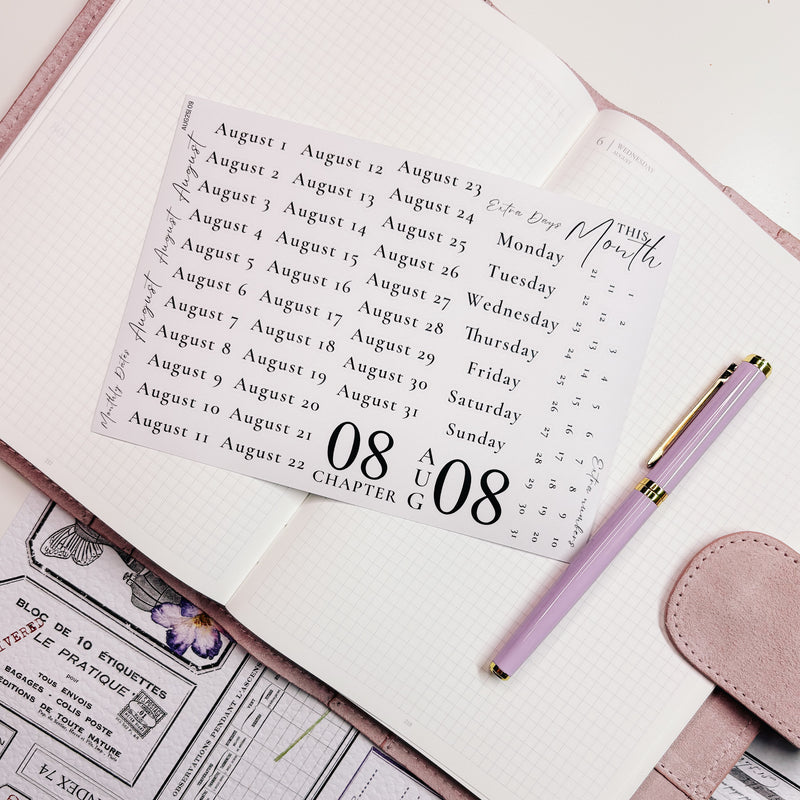 AUG2SL09
August 1
August 2
August 3
August 4
August 5
August 6
August 7
August 8
August 9
August 10
August 11
August 12
August 13
August 14
August 15
August 16
August 17
August 18
August 19
August 20
August 21
August 22
August 23
August 24
August 25
August 26
August 27
August 28
August 29
August 30
August 31
August August August
Monthly Dates
Extra Days
Monday
Tuesday
Wednesday
Thursday
Friday
Saturday
Sunday
THIS
Month
1 2 3 4 5 6 7 8 9 10
11 12 13 14 15 16 17 18 19 20
21 22 23 24 25 26 27 28 29 30 31
Extra numbers
08
CHAPTER
AUG
08
6 WEDNESDAY
AUGUST
BLOC DE 10 ÉTIQUETTES
LE PRATIQUE
pour
TOUS ENVOIS
BAGAGES - COLIS POSTE
EDITIONS DE TOUTE NATURE
INDEX 74
OBSERVATIONS PENDANT L'ASCENS